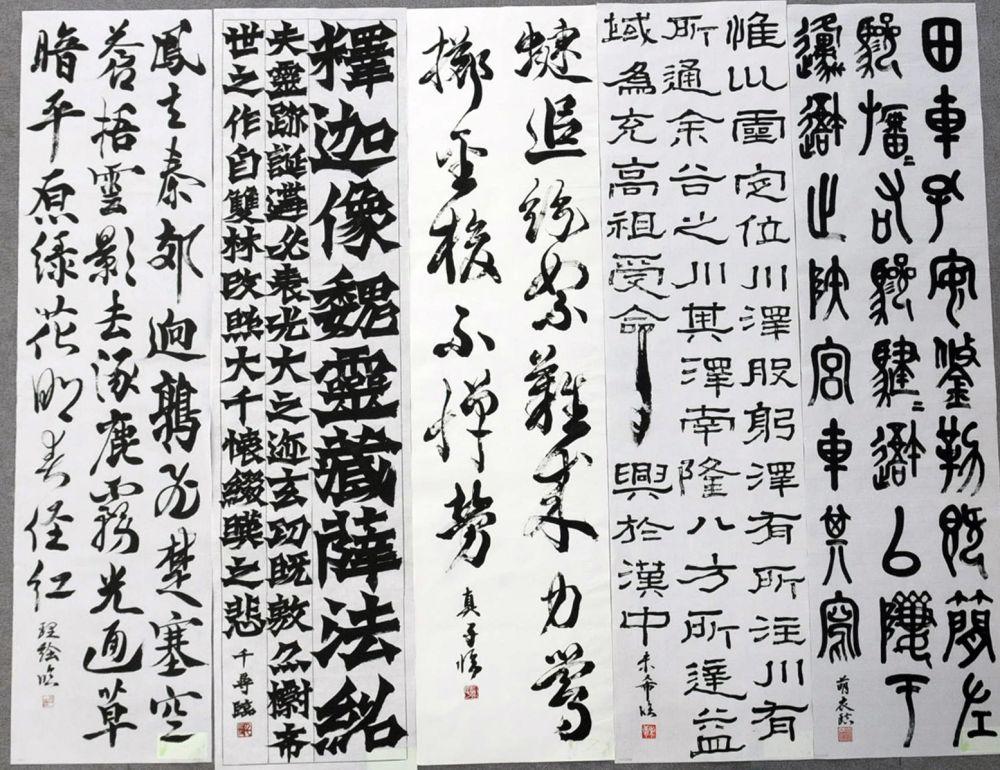 田車孔安鋚勒既簡左
驂旛=右驂騝=䢒以隮于
邍䢒止陝宮車其寫
萌衣臨
惟巛靈定位川澤股躬澤有所注川有
所通余谷之川其澤南隆八方所達益
域為充高祖受命興於漢中
未希臨
蜨追飛絮難力鶯
擲金梭不憚勞
真子臨
釋迦像魏靈藏薛法紹
夫靈跡誕遘必表光大之迹玄功既敷亦標希
世之作自雙林改照大千懷綴暎之悲
千尋臨
鳳出秦郊迥鶉飛楚塞空
蒼梧雲影去涿鹿霧光通草
暗平原綠花明春徑紅
理絵臨